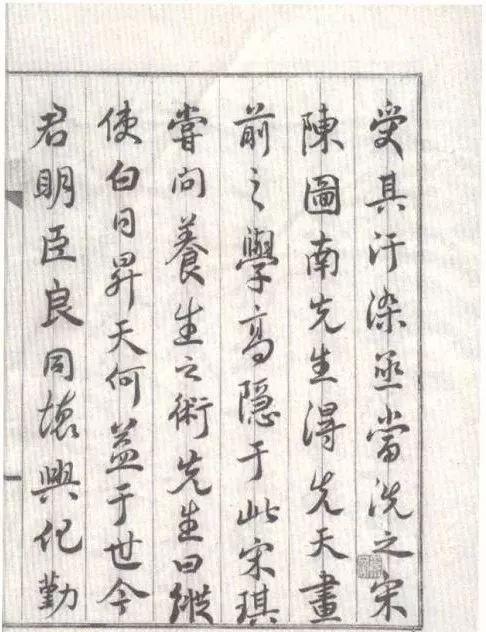 受其汙染亟當洗之宋
陳圖南先生得先天畫
前之學高隱于此宋琪
嘗问養生之術先生曰縱
使白日昇天何益于世今
君明臣良同德興化勤